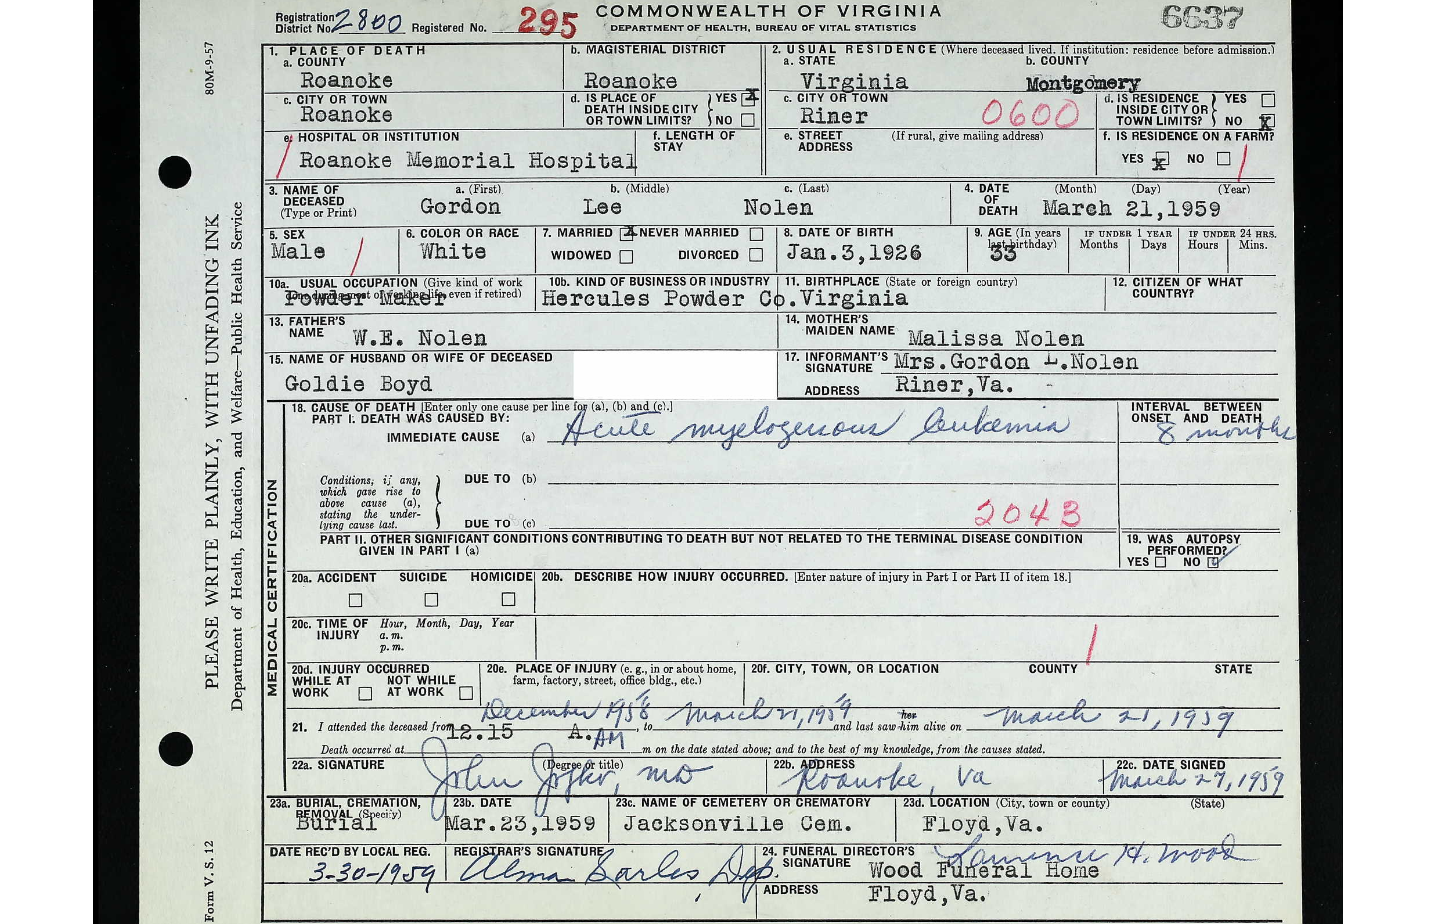 Registration District No. 2800 Registered No. 295
COMMONWEALTH OF VIRGINIA
DEPARTMENT OF HEALTH, BUREAU OF VITAL STATISTICS
6637
80M-9-57
PLEASE WRITE PLAINLY, WITH UNFADING INK
Department of Health, Education, and Welfare—Public Health Service
Form V. S. 12
1. PLACE OF DEATH
a. COUNTY
Roanoke
b. MAGISTERIAL DISTRICT
Roanoke
2. USUAL RESIDENCE (Where deceased lived. If institution: residence before admission.)
a. STATE
Virginia
b. COUNTY
Montgomery
c. CITY OR TOWN
Roanoke
d. IS PLACE OF DEATH INSIDE CITY OR TOWN LIMITS? YES X NO
c. CITY OR TOWN
Riner
0600
d. IS RESIDENCE INSIDE CITY OR TOWN LIMITS? YES NO X
e. HOSPITAL OR INSTITUTION
Roanoke Memorial Hospital
f. LENGTH OF STAY
e. STREET ADDRESS (If rural, give mailing address)
f. IS RESIDENCE ON A FARM?
YES X NO
3. NAME OF DECEASED (Type or Print)
a. (First) b. (Middle) c. (Last)
Gordon Lee Nolen
4. DATE OF DEATH (Month) (Day) (Year)
March 21,1959
5. SEX
Male
6. COLOR OR RACE
White
7. MARRIED X NEVER MARRIED
WIDOWED DIVORCED
8. DATE OF BIRTH
Jan.3,1926
9. AGE (In years last birthday)
33
IF UNDER 1 YEAR
Months Days
IF UNDER 24 HRS.
Hours Mins.
10a. USUAL OCCUPATION (Give kind of work done during most of working life, even if retired)
Powder Maker
10b. KIND OF BUSINESS OR INDUSTRY
Hercules Powder Co.
11. BIRTHPLACE (State or foreign country)
Virginia
12. CITIZEN OF WHAT COUNTRY?
13. FATHER'S NAME
W.E. Nolen
14. MOTHER'S MAIDEN NAME
Malissa Nolen
15. NAME OF HUSBAND OR WIFE OF DECEASED
Goldie Boyd
17. INFORMANT'S SIGNATURE Mrs.Gordon L.Nolen
ADDRESS Riner,Va.
MEDICAL CERTIFICATION
18. CAUSE OF DEATH [Enter only one cause per line for (a), (b) and (c).]
PART I. DEATH WAS CAUSED BY:
IMMEDIATE CAUSE (a) Acute myelogenous leukemia
INTERVAL BETWEEN ONSET AND DEATH
8 months
Conditions, if any, which gave rise to above cause (a), stating the underlying cause last.
DUE TO (b)
DUE TO (c)
2043
PART II. OTHER SIGNIFICANT CONDITIONS CONTRIBUTING TO DEATH BUT NOT RELATED TO THE TERMINAL DISEASE CONDITION GIVEN IN PART I (a)
19. WAS AUTOPSY PERFORMED?
YES NO
20a. ACCIDENT SUICIDE HOMICIDE
20b. DESCRIBE HOW INJURY OCCURRED. [Enter nature of injury in Part I or Part II of item 18.]
20c. TIME OF INJURY Hour, Month, Day, Year
a.m.
p.m.
20d. INJURY OCCURRED
WHILE AT WORK NOT WHILE AT WORK
20e. PLACE OF INJURY (e. g., in or about home, farm, factory, street, office bldg., etc.)
20f. CITY, TOWN, OR LOCATION COUNTY STATE
21. I attended the deceased from December 1958, to March 21, 1959 and last saw her him alive on March 21, 1959
Death occurred at 12.15 A. AM m on the date stated above; and to the best of my knowledge, from the causes stated.
22a. SIGNATURE (Degree or title)
John MD
22b. ADDRESS
Roanoke, Va
22c. DATE SIGNED
March 27, 1959
23a. BURIAL, CREMATION, REMOVAL (Specify)
Burial
23b. DATE
Mar.23,1959
23c. NAME OF CEMETERY OR CREMATORY
Jacksonville Cem.
23d. LOCATION (City, town or county) (State)
Floyd,Va.
DATE REC'D BY LOCAL REG.
3-30-1959
REGISTRAR'S SIGNATURE
Alma Sarles, Dep.
24. FUNERAL DIRECTOR'S SIGNATURE
Lawrence H. Wood
Wood Funeral Home
ADDRESS Floyd,Va.